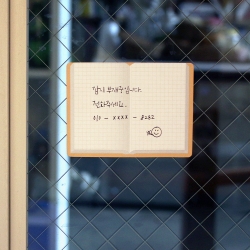 잠시 부재중입니다.
전화주세요.
010 - xxxx - 8282